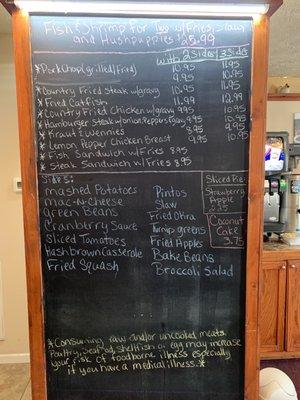 Fish/Shrimp for Two w/Fries, Slaw
and Hushpuppies $25.99
with 2 Sides 3 Sides
*PorkChop (grilled/fried) 10.95 11.95
9.95 10.95
*Country Fried Steak w/gravy 10.95 11.95
*Fried Catfish 11.99 12.99
*Country Fried Chicken w/gravy 9.95 10.95
*Hamburger Steak w/onion Peppers Gravy 9.95 10.95
*Kraut & Wennies 8.95 9.95
*Lemon Pepper Chicken Breast 9.95 10.95
*Fish Sandwich w/Fries 8.95
*Steak Sandwich w/Fries 8.95
Sides:
mashed Potatoes
mac-n-Cheese
green Beans
Cranberry Sauce
Sliced Tomatoes
Hashbrown Casserole
Fried Squash
Pintos
Slaw
Fried Okra
Turnip greens
Fried Apples
Bake Beans
Broccoli Salad
Sliced Pie:
Strawberry
Apple
Coconut
Cake
3.75
*Consuming raw and/or uncooked meats,
Poultry, Seafood, Shellfish or egg may increase
your risk of foodborne illness especially
if you have a medical illness.*